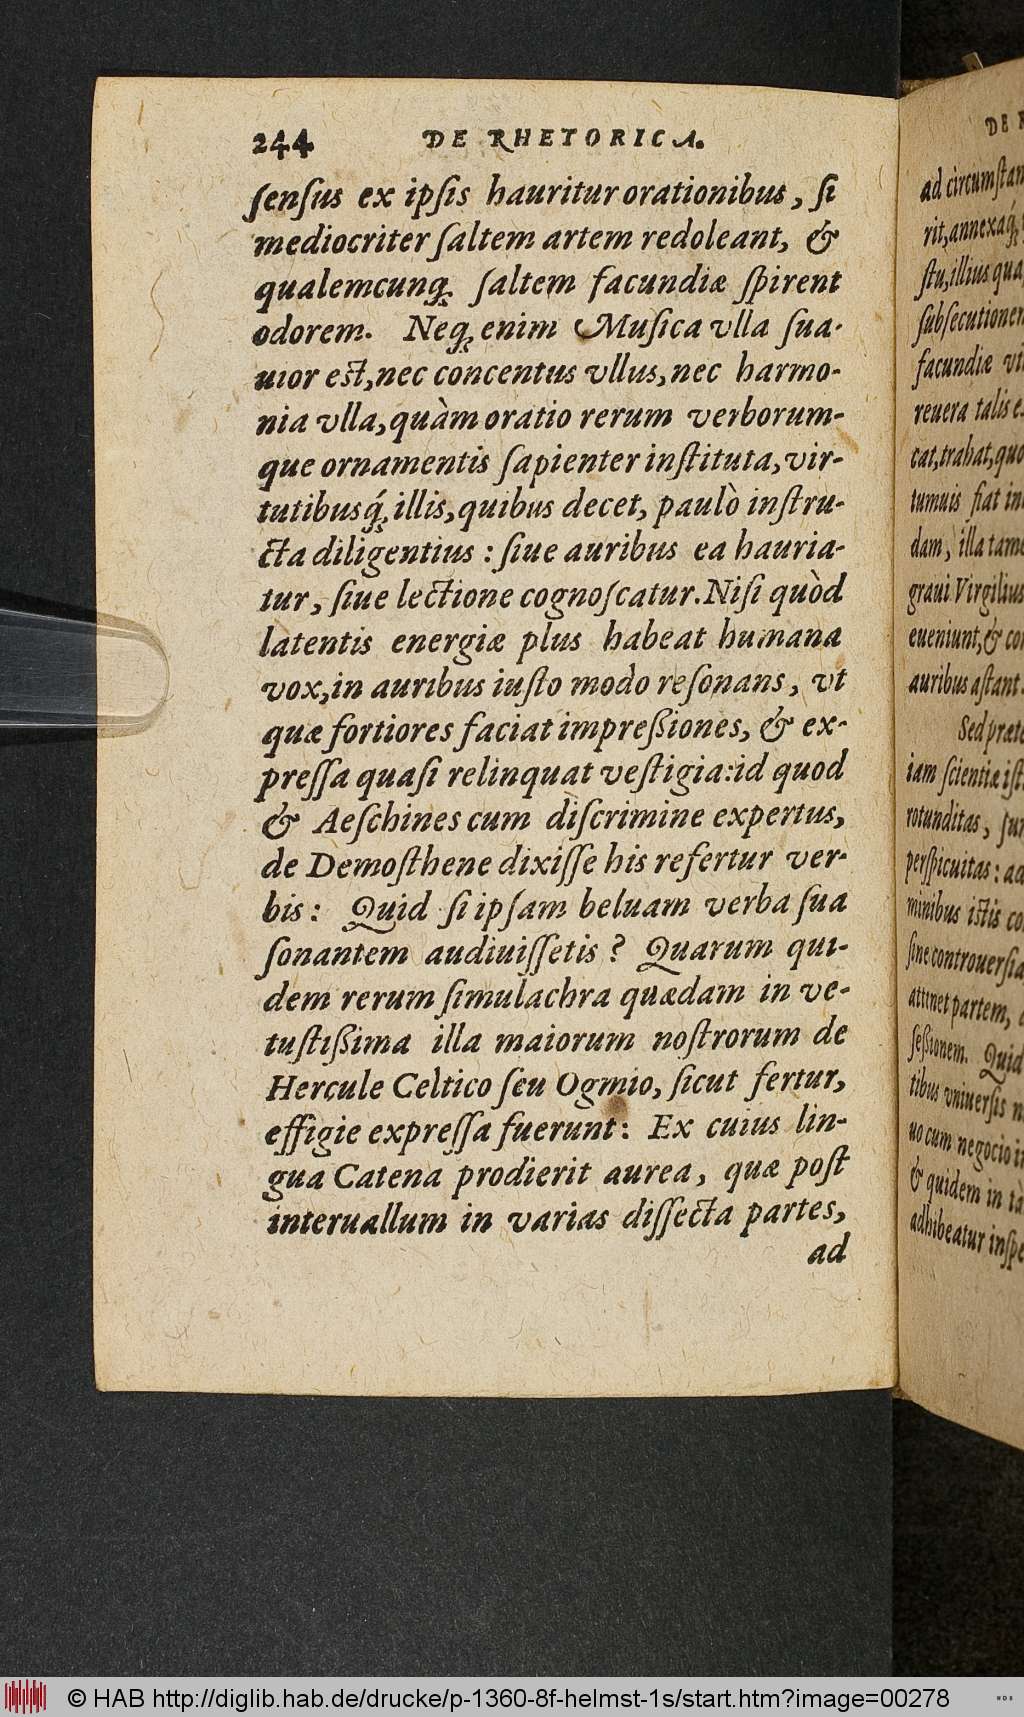 244 DE RHETORICA.
ſenſus ex ipſis hauritur orationibus, ſi
mediocriter ſaltem artem redoleant, &
qualemcunq́; ſaltem facundiæ ſpirent
odorem. Neq; enim Muſica vlla ſua-
uior eſt, nec concentus vllus, nec harmo-
nia vlla, quàm oratio rerum verborum-
que ornamentis ſapienter inſtituta, vir-
tutibusq́; illis, quibus decet, paulò inſtru-
cta diligentius: ſiue auribus ea hauria-
tur, ſiue lectione cognoſcatur. Niſi quòd
latentis energiæ plus habeat humana
vox, in auribus iuſto modo reſonans, vt
quæ fortiores faciat impreßiones, & ex-
preſſa quaſi relinquat veſtigia: id quod
& Aeſchines cum diſcrimine expertus,
de Demoſthene dixiſſe his refertur ver-
bis: Quid ſi ipſam beluam verba ſua
ſonantem audiuiſſetis? Quarum qui-
dem rerum ſimulachra quædam in ve-
tuſtißima illa maiorum noſtrorum de
Hercule Celtico ſeu Ogmio, ſicut fertur,
effigie expreſſa fuerunt: Ex cuius lin-
gua Catena prodierit aurea, quæ poſt
interuallum in varias diſſecta partes,
ad
DE
ad circumſtan
rit, annexaq́;
ſtu, illius qua
ſubſecutionem
facundiæ vi
reuera talis e
cat, trahat, quo
tumuis fiat in
dam, illa tame
graui Virgilius
eueniunt, & co
auribus aſtant.
Sed præte
iam ſcientiæ iſt
rotunditas, ſu
perſpicuitas: ad
minibus iſtis co
ſine controuerſia
attinet partem,
ſeßionem. Quid
tibus vniuerſis n
uo cum negocio i
& quidem in ta
adhibeatur inſpe
© HAB http://diglib.hab.de/drucke/p-1360-8f-helmst-1s/start.htm?image=00278